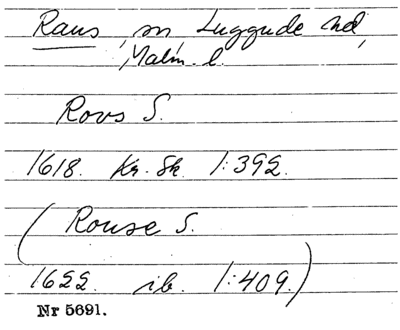 Raus, sn Luggude hd,
Malm. l.
Rovs S.
1618. Kr. Sk 1:392.
(Rouse S.
1622. ib. 1:409.)
Nr 5691.